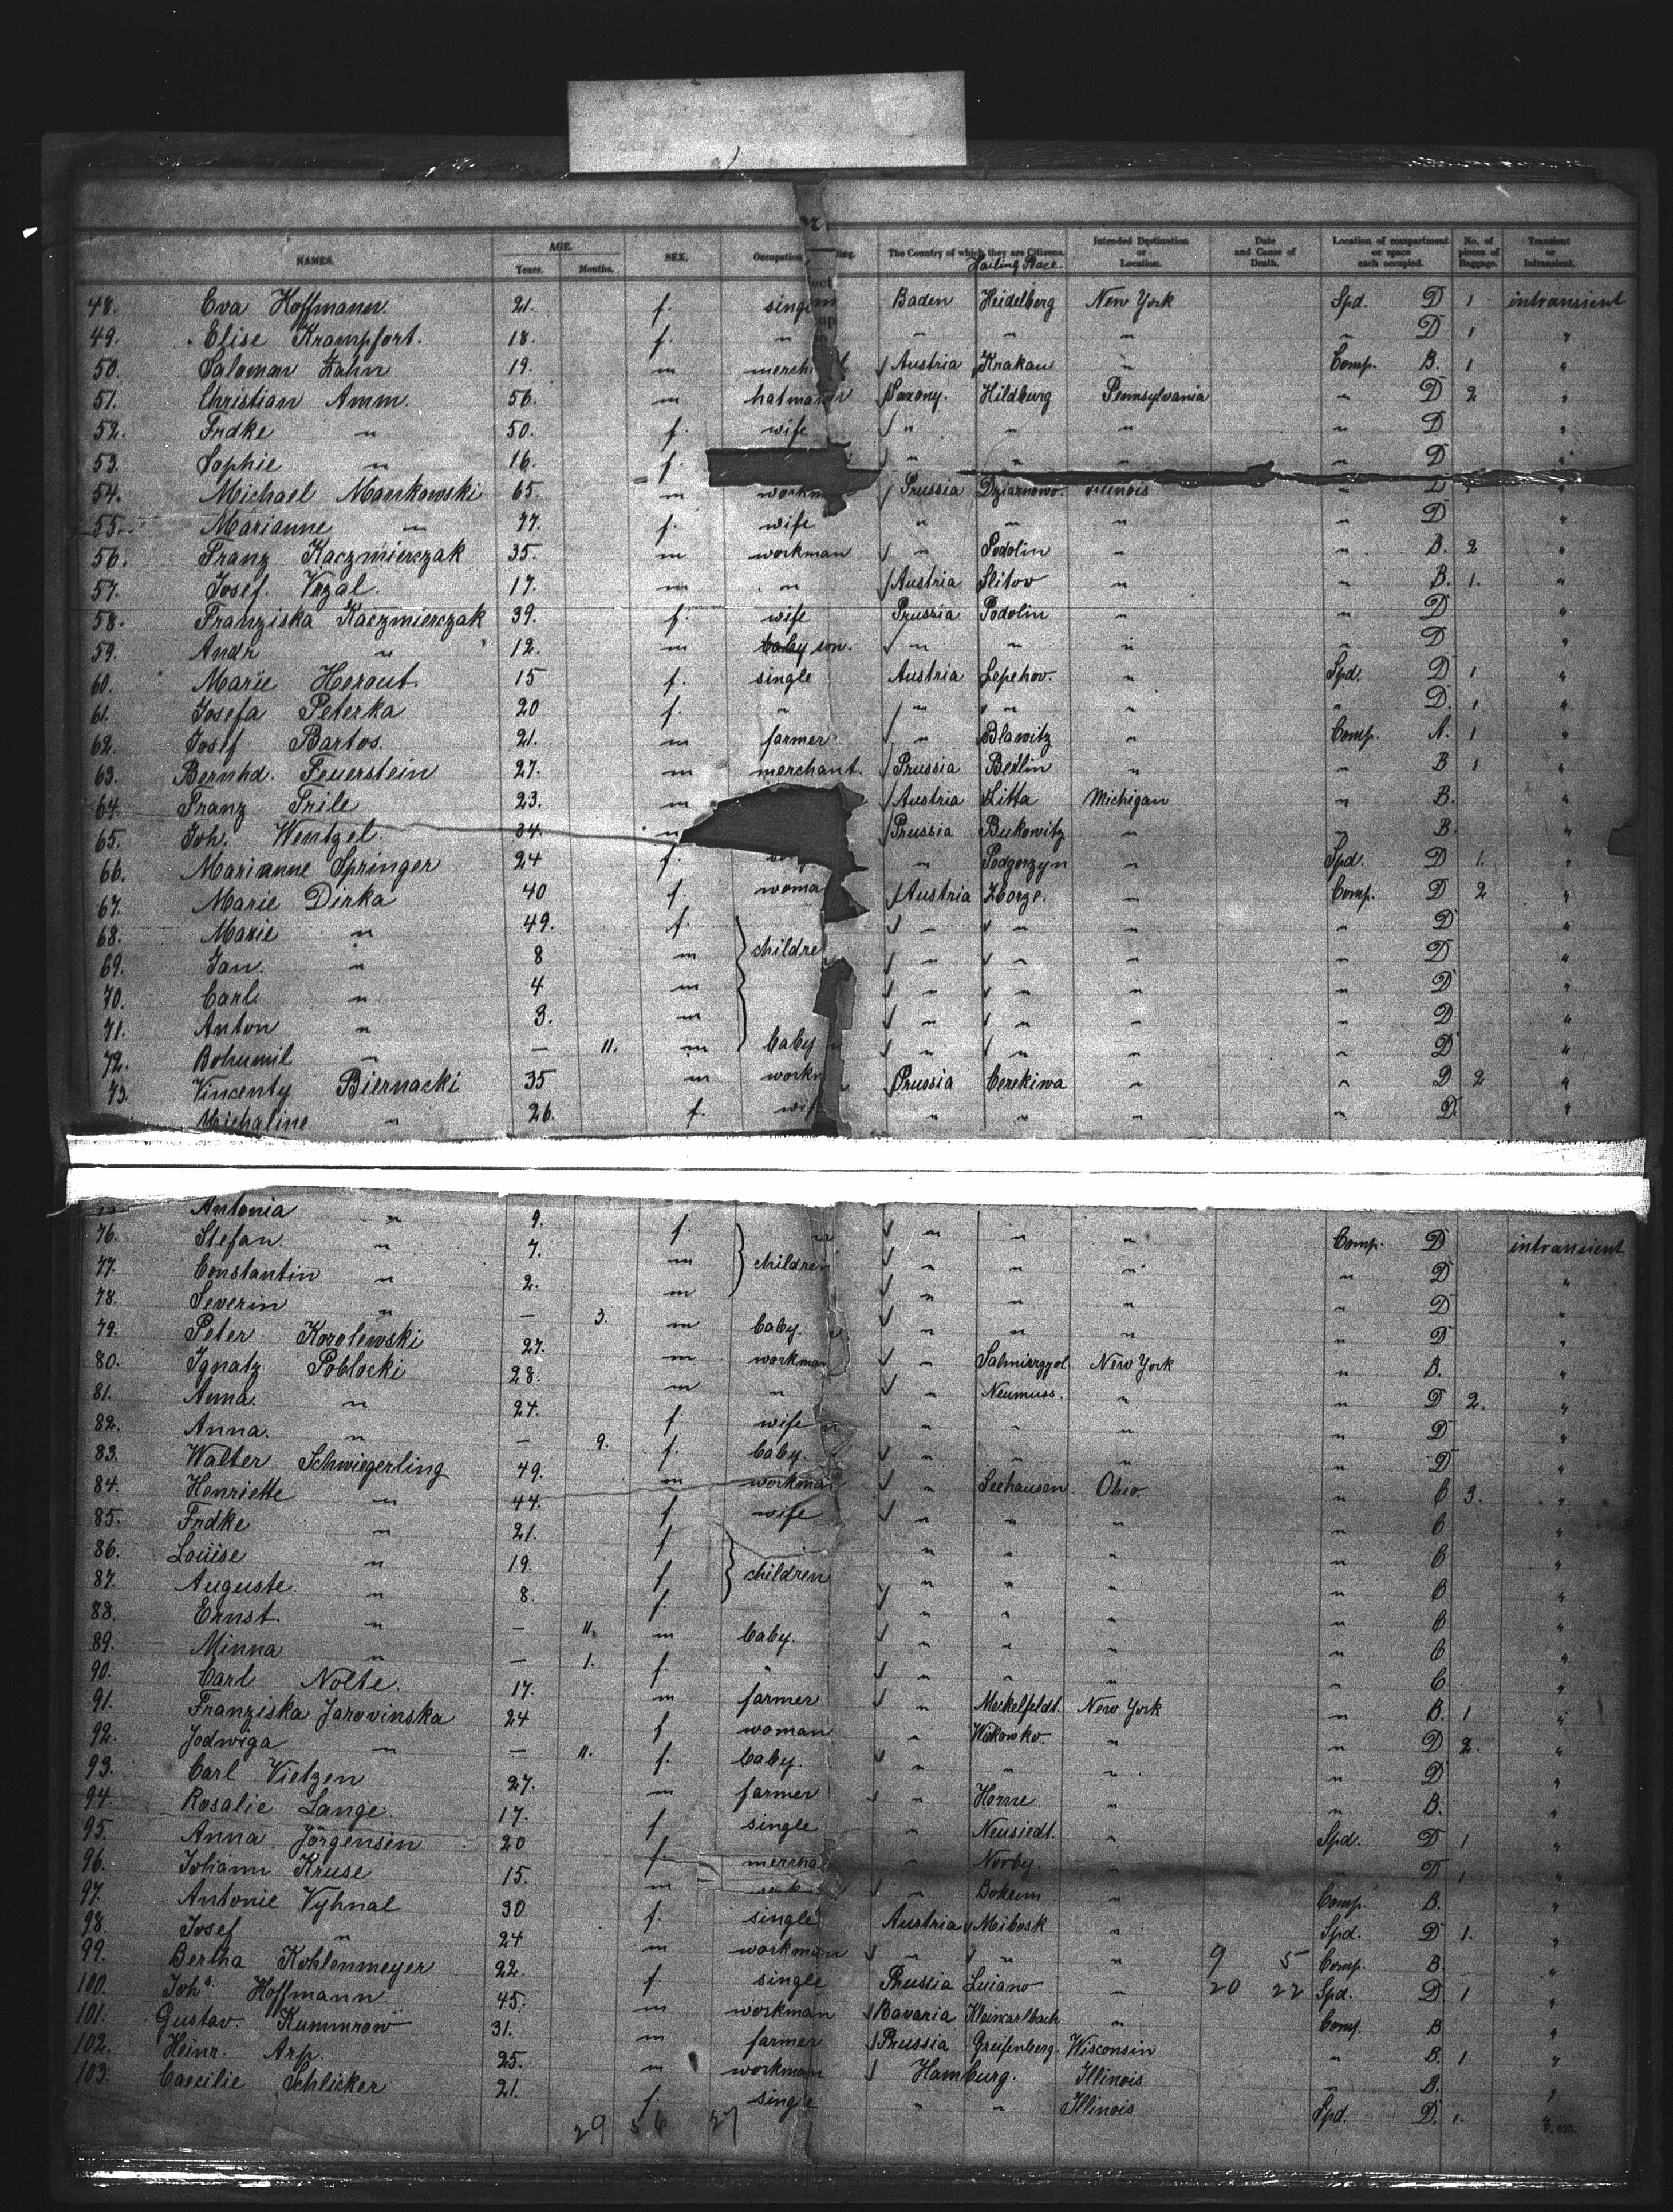 NAMES. AGE. Years. Months. SEX. Occupation The Country of which they are Citizens. Hailing Place Intended Destination or Location. Date and Cause of Death. Location of compartment or space each occupied. No. of pieces of Baggage. Transient or Intransient.
48. Eva Hoffmann. 21. f. Baden Heidelberg New York Spd. D 1 intransient
49. Elise Krampfort. 18. f. " " " " " D 1 "
50. Salomon Zahn 19. m Austria Krakau " Comp. B. 1 "
51. Christian Amm. 56. m Saxony. Hildburg Pennsylvania " D 2 "
52. Frdke " 50. f. wife " " " " D "
53. Sophie " 16. f. " " " " D "
54. Michael Mankowski 65. m Prussia Dziarnowo. Illinois " "
55. Marianne " 77. f. wife " " " " D "
56. Franz Kaczmierczak 35. m workman " Podolin " " B. 2 "
57. Josef. Vrzal. 17. m " Austria Slitov " " B. 1. "
58. Franziska Kaczmierczak 39. f. wife Prussia Podolin " " D "
59. Andr " 12. m baby son. " " " " D "
60. Marie Herout. 15 f. single Austria Lepehov " Spd. D 1 "
61. Josefa Peterka 20 f. " " " " " D. 1. "
62. Josef Bartos. 21. m farmer " Blawitz " Comp. A. 1 "
63. Bernhd. Feuerstein 27. m merchant. Prussia Berlin " " B 1 "
64. Franz Trile 23. m Austria Litta Michigan " B. "
65. Joh. Wentzel. 34. m Prussia Bukowitz " " B. "
66. Marianne Springer 24 f. " Podgorzyn " Spd. D 1. "
67. Marie Dirka 40 f. Austria Zborze. " Comp. D 2 "
68. Marie " 49. f. " " " " D "
69. Jan. " 8 m " " " " D "
70. Carl " 4 m " " " " D "
71. Anton " 3. m " " " " D "
72. Bohumil " — 11. m baby " " " " D "
73. Vincenty Biernacki 35 m Prussia Cerekiwa " " D 2 "
Michaline " 26. f. " " " " D. "
Antonia " 9. f. " " " " Comp. D intransient
76. Stefan. " 7. m children " " " " D "
77. Constantin " 2. m " " " " D "
78. Severin " — 3. m baby. " " " " D "
79. Peter Korolewski 27. m workman " New York " B. "
80. Ignatz Poblocki 28. m " " Neumuss. " " D 2. "
81. Anna. " 24. f. wife " " " " D "
82. Anna. " — 9. f. baby. " " " " D "
83. Walter Schwiegerling 49. m workman " Seehausen Ohio. " C 3. "
84. Henriette " 44. f wife " " " " C "
85. Frdke " 21. f " " " " C "
86. Louise " 19. f children " " " " C "
87. Auguste. " 8. f. " " " " C "
88. Ernst. " — 11. m baby. " " " " C "
89. Minna " — 1. f. " " " " " C "
90. Carl Nolte. 17. m farmer " Meckelfeldt. New York " B. 1 "
91. Franziska Jarovinska 24 f woman " " " D 2. "
92. Jodwiga " — 11. f. baby. " " " " D "
93. Carl Vietzen 27. m farmer " Horne " " B. "
94. Rosalie Lange. 17. f single " Neusiedt. " Spd. D 1 "
95. Anna Jörgensen 20 f " Norby " " D 1 "
96. Johann Kruse 15. m " Bokum " Comp. B. "
97. Antonie Vyhnal 30 f. single Austria Mibosk " Spd. D 1. "
98. Josef " 24 m workman " " " 9 5 Comp. B. "
99. Bertha Kohlenmeyer 22. f. single Prussia Luiano " 20 22 Spd. D 1 "
100. Joh. Hoffmann. 45. m workman Bavaria Kleincarlbach " Comp. B "
101. Gustav. Kummrow 31. m farmer Prussia Greifenberg. Wisconsin " B. 1 "
102. Heinr. Arp. 25. m workman Hamburg. Illinois " B. "
103. Caecilie Schlicker 21. f single " " Illinois Spd. D. 1. "
29 56 27